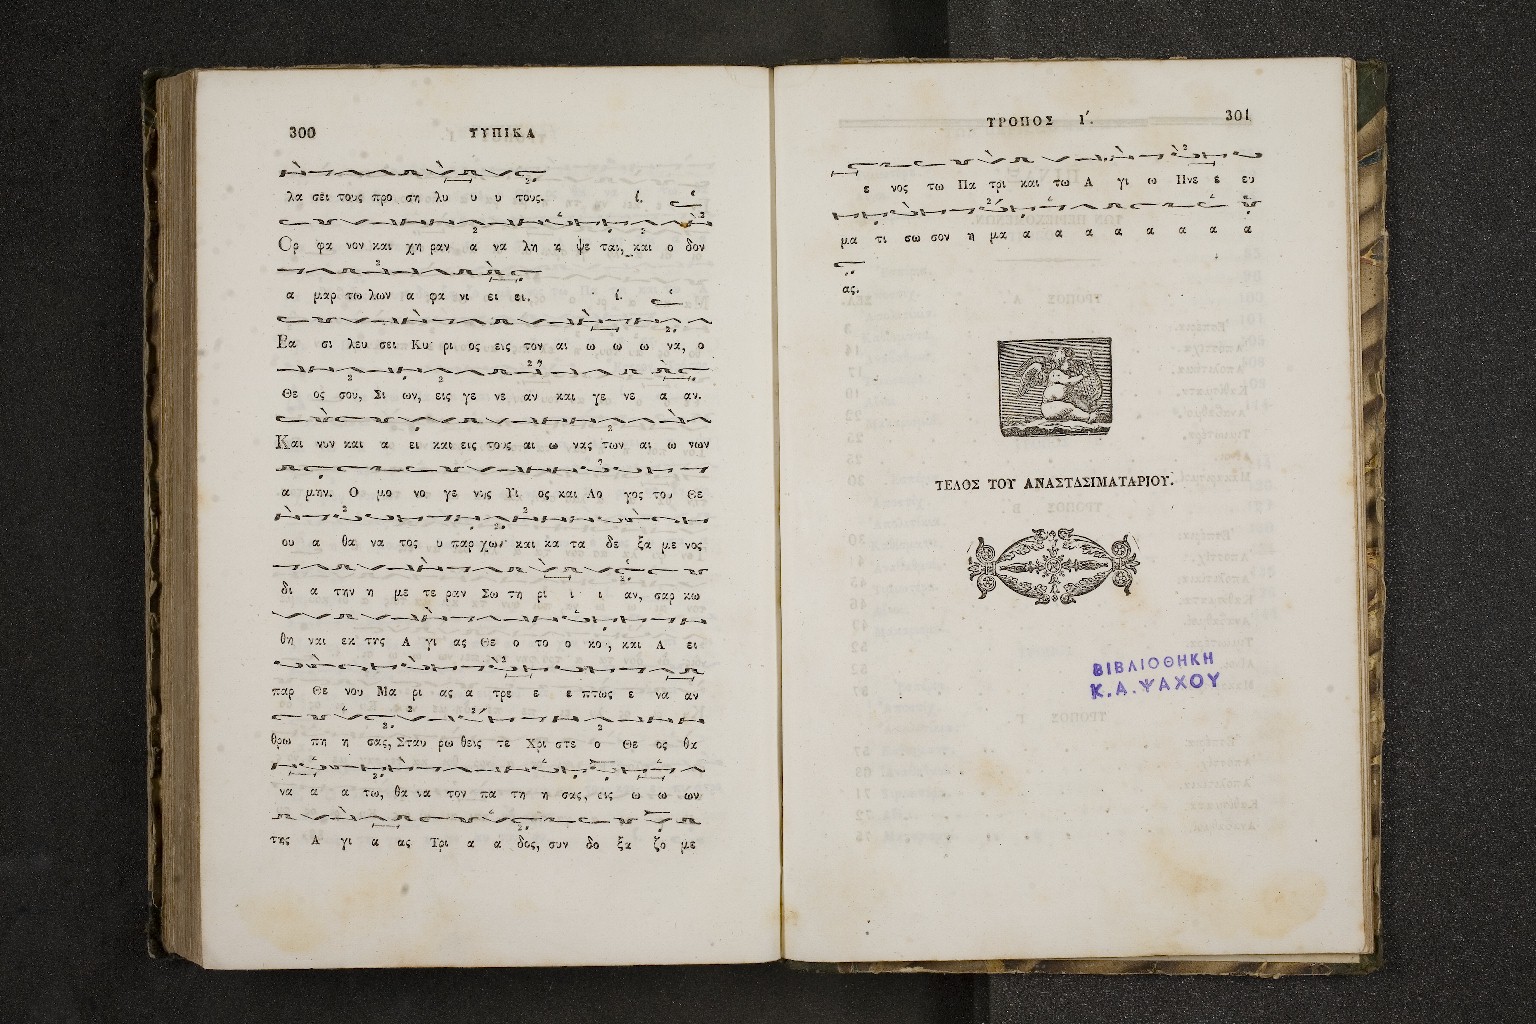 300 ΤΥΠΙΚΑ
λα σει τους προ ση λυ υ υ τους.
Ορ φα νον και χη ραν α να λη η ψε ται, και ο δον
α μαρ τω λων α φα νι ει ει.
Βα σι λευ σει Κυ ρι ος εις τον αι ω ω ω να, ο
Θε ος σου, Σι ων, εις γε νε αν και γε νε α αν.
Και νυν και α ει και εις τους αι ω νας των αι ω νων
α μην. Ο μο νο γε νης Υι ος και Λο γος του Θε
ου α θα να τος υ παρ χων και κα τα δε ξα με νος
δι α την η με τε ραν Σω τη ρι ι ι αν, σαρ κω
θη ναι εκ της Α γι ας Θε ο το ο κου, και Α ει
παρ Θε νου Μα ρι ας α τρε ε ε πτως ε να αν
θρω πη η σας, Σταυ ρω θεις τε Χρι στε ο Θε ος θα
να α α τω, θα να τον πα τη η σας, εις ω ω ων
της Α γι α ας Τρι α α δος, συν δο ξα ζο με
ΤΡΟΠΟΣ Ι΄. 301
ε νος τω Πα τρι και τω Α γι ω Πνε ε ευ
μα τι σω σον η μα α α α α α α α α
ας.
ΤΕΛΟΣ ΤΟΥ ΑΝΑΣΤΑΣΙΜΑΤΑΡΙΟΥ.
ΒΙΒΛΙΟΘΗΚΗ
Κ. Α. ΨΑΧΟΥ